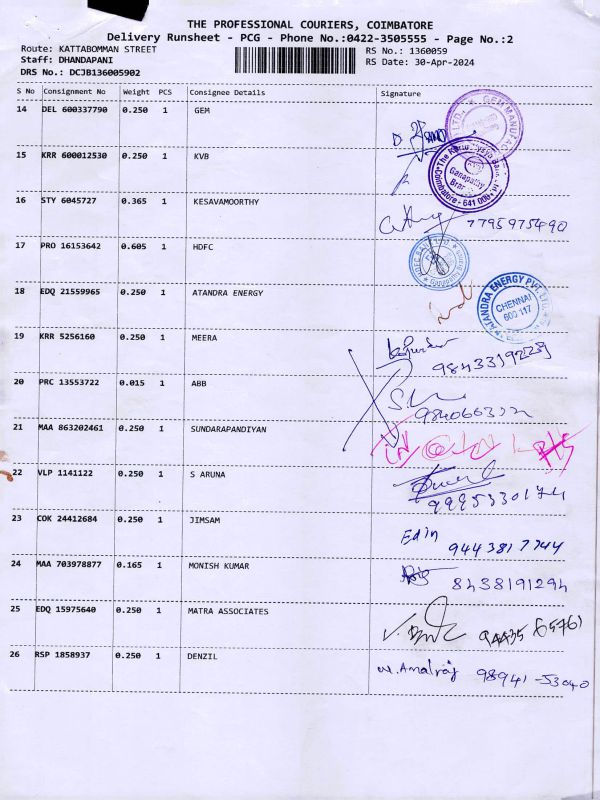 THE PROFESSIONAL COURIERS, COIMBATORE
Delivery Runsheet - PCG - Phone No.:0422-3505555 - Page No.:2
Route: KATTABOMMAN STREET RS No.: 1360059
Staff: DHANDAPANI RS Date: 30-Apr-2024
DRS No.: DCJB136005902
S No Consignment No Weight PCS Consignee Details Signature
14 DEL 600337790 0.250 1 GEM
15 KRR 600012530 0.250 1 KVB
Ganapathy
Coimbatore - 641 006
16 STY 6045727 0.365 1 KESAVAMOORTHY
7795975490
17 PRO 16153642 0.605 1 HDFC
18 EDQ 21559965 0.250 1 ATANDRA ENERGY
ATANDRA ENERGY PVT. LTD.
CHENNAI
600 117
19 KRR 5256160 0.250 1 MEERA
9843319239
20 PRC 13553722 0.015 1 ABB
21 MAA 863202461 0.250 1 SUNDARAPANDIYAN
22 VLP 1141122 0.250 1 S ARUNA
9995330174
23 COK 24412684 0.250 1 JIMSAM
Edin 9443817744
24 MAA 703978877 0.165 1 MONISH KUMAR
8438191294
25 EDQ 15975640 0.250 1 MATRA ASSOCIATES
26 RSP 1858937 0.250 1 DENZIL
W. Amalraj 98941-53040